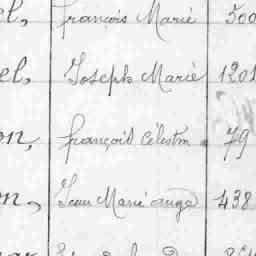 el, François Marie 500
el, Joseph Marie 1201
on, françois Célestin 79
on, Jean Marie ange 438